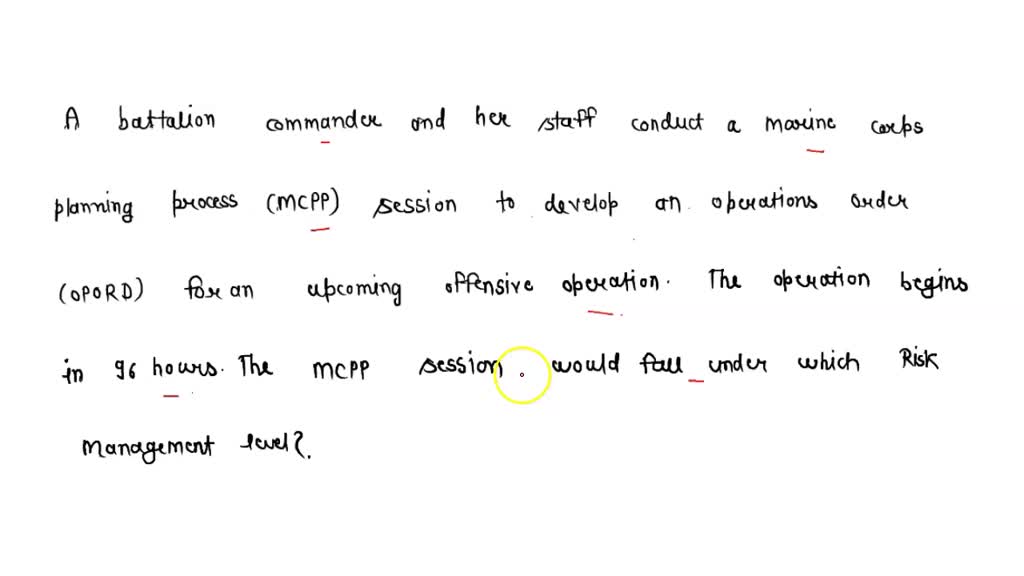 A battalion commander and her staff conduct a marine corps
planning process (MCPP) session to develop an operations order
(OPORD) for an upcoming offensive operation. The operation begins
in 96 hours. The MCPP session would fall under which Risk
Management level?.